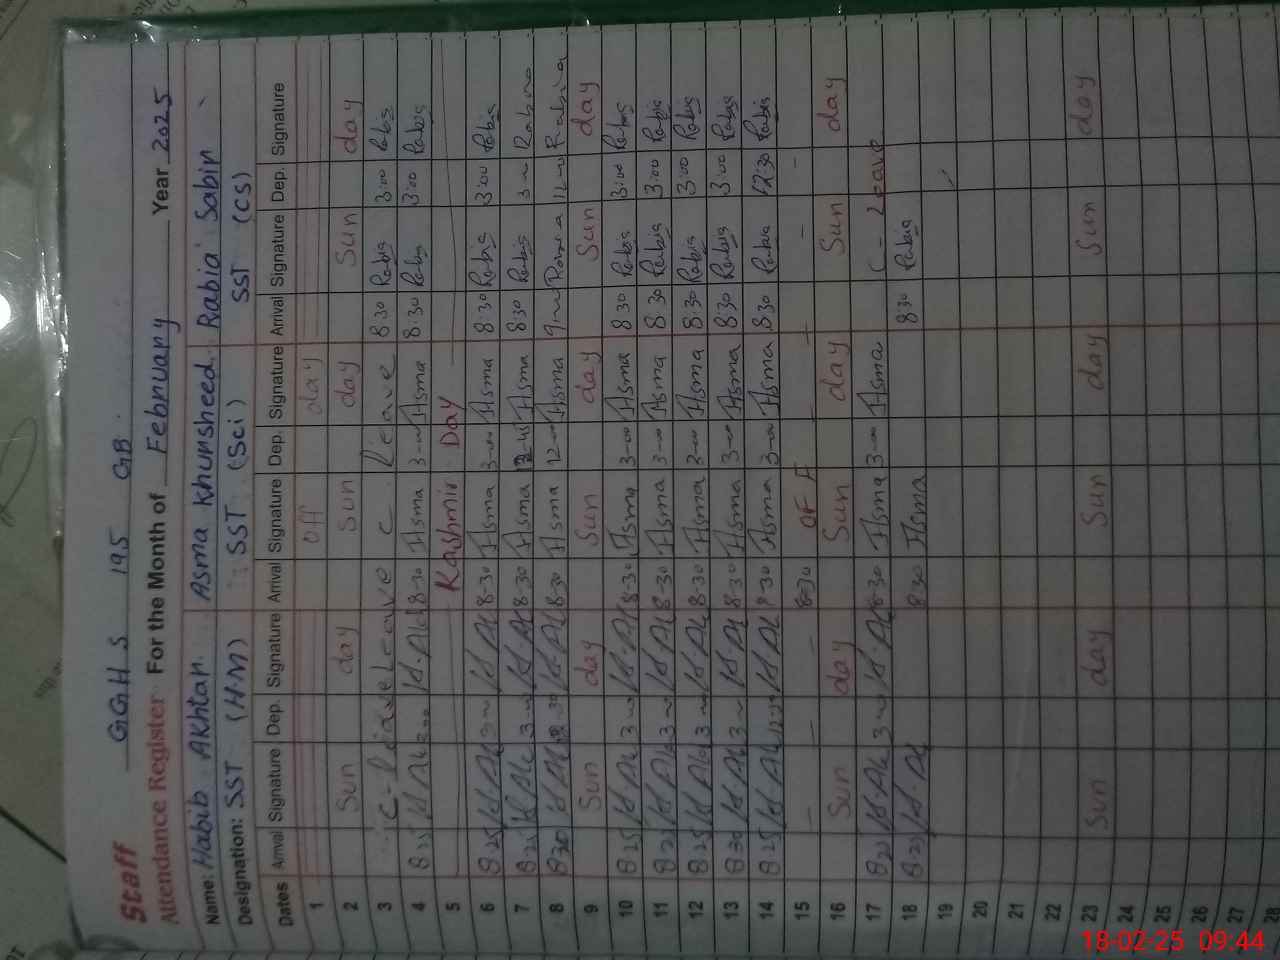 Staff GGHS 195 GB.
Attendance Register For the Month of February Year 2025
Name: Habib Akhtar Asma Khursheed Rabia Sabir
Designation: SST (H.M) SST (Sci) SST (CS)
Dates Arrival Signature Dep. Signature Arrival Signature Dep. Signature Arrival Signature Dep. Signature
1 off day
2 Sun day Sun day Sun day
3 C - leave Leave C leave 8:30 Rabia 3:00 Rabia
4 8:25 H.Akh 3:00 H.Akh 8:30 Asma 3-00 Asma 8:30 Rabia 3:00 Rabia
5 Kashmir Day
6 8:25 H.Akh 3-00 H.Akh 8-30 Asma 3-00 Asma 8:30 Rabia 3:00 Rabia
7 8:25 H.Akh 3-00 H.Akh 8-30 Asma 12-45 Asma 8:30 Rabia 3-00 Rabia
8 8:30 H.Akh 12:30 H.Akh 8-30 Asma 12-00 Asma 9-00 Rabia 12-00 Rabia
9 Sun day Sun day Sun day
10 8:25 H.Akh 3-00 H.Akh 8-30 Asma 3-00 Asma 8:30 Rabia 3:00 Rabia
11 8:25 H.Akh 3-00 H.Akh 8-30 Asma 3-00 Asma 8:30 Rabia 3:00 Rabia
12 8:25 H.Akh 3-00 H.Akh 8-30 Asma 3-00 Asma 8:30 Rabia 3:00 Rabia
13 8:30 H.Akh 3-00 H.Akh 8-30 Asma 3-00 Asma 8:30 Rabia 3:00 Rabia
14 8:25 H.Akh H.Akh 8-30 Asma 3-00 Asma 8:30 Rabia 12:30 Rabia
15 - - - 8-30 OFF - - - -
16 Sun day Sun day Sun day
17 8:25 H.Akh 3-00 H.Akh 8-30 Asma 3-00 Asma C - Leave
18 8:25 H.Akh 8:30 Asma 8:30 Rabia
19
20
21
22
23 Sun day Sun day Sun day
24
25
26
27
28
18-02-25 09:44